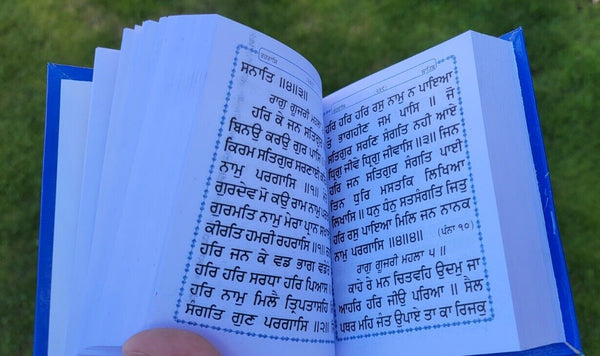 ਸਨਾਤਿ ॥੪॥੩॥
ਰਾਗੁ ਗੂਜਰੀ ਮਹਲਾ
ਹਰਿ ਕੇ ਜਨ ਸਤਿਗੁਰ
ਬਿਨਉ ਕਰਉ ਗੁਰ ਪਾਸਿ ॥
ਕਿਰਮ ਸਤਿਗੁਰ ਸਰਣਾਈ
ਨਾਮੁ ਪਰਗਾਸਿ ॥੧॥
ਗੁਰਦੇਵ ਮੋ ਕਉ ਰਾਮ ਨਾਮੁ
ਗੁਰਮਤਿ ਨਾਮੁ ਮੇਰਾ ਪ੍ਰਾਨ
ਕੀਰਤਿ ਹਮਰੀ ਰਹਰਾਸਿ ॥੧॥
ਹਰਿ ਜਨ ਕੇ ਵਡ ਭਾਗ ਵਡੇਰੇ
ਹਰਿ ਹਰਿ ਸਰਧਾ ਹਰਿ ਪਿਆਸ
ਹਰਿ ਨਾਮੁ ਮਿਲੈ ਤ੍ਰਿਪਤਾਸਹਿ
ਸੰਗਤਿ ਗੁਣ ਪਰਗਾਸਿ ॥੨॥
ਹਰਿ ਹਰਿ ਹਰਿ ਰਸੁ ਨਾਮੁ ਨ ਪਾਇਆ
ਤੇ ਭਾਗਹੀਣ ਜਮ ਪਾਸਿ ॥ ਜੋ
ਸਤਿਗੁਰ ਸਰਣਿ ਸੰਗਤਿ ਨਹੀ ਆਏ
ਧ੍ਰਿਗੁ ਜੀਵੇ ਧ੍ਰਿਗੁ ਜੀਵਾਸਿ ॥੩॥ ਜਿਨ
ਹਰਿ ਜਨ ਸਤਿਗੁਰ ਸੰਗਤਿ ਪਾਈ
ਤਿਨ ਧੁਰਿ ਮਸਤਕਿ ਲਿਖਿਆ
ਲਿਖਾਸਿ ॥ ਧਨੁ ਧੰਨੁ ਸਤਸੰਗਤਿ ਜਿਤੁ
ਹਰਿ ਰਸੁ ਪਾਇਆ ਮਿਲਿ ਜਨ ਨਾਨਕ
ਨਾਮੁ ਪਰਗਾਸਿ ॥੪॥੪॥ (ਪੰਨਾ ੧੦)
ਰਾਗੁ ਗੂਜਰੀ ਮਹਲਾ ੫ ॥
ਕਾਹੇ ਰੇ ਮਨ ਚਿਤਵਹਿ ਉਦਮੁ ਜਾ
ਆਹਰਿ ਹਰਿ ਜੀਉ ਪਰਿਆ ॥ ਸੈਲ
ਪਥਰ ਮਹਿ ਜੰਤ ਉਪਾਏ ਤਾ ਕਾ ਰਿਜਕੁ